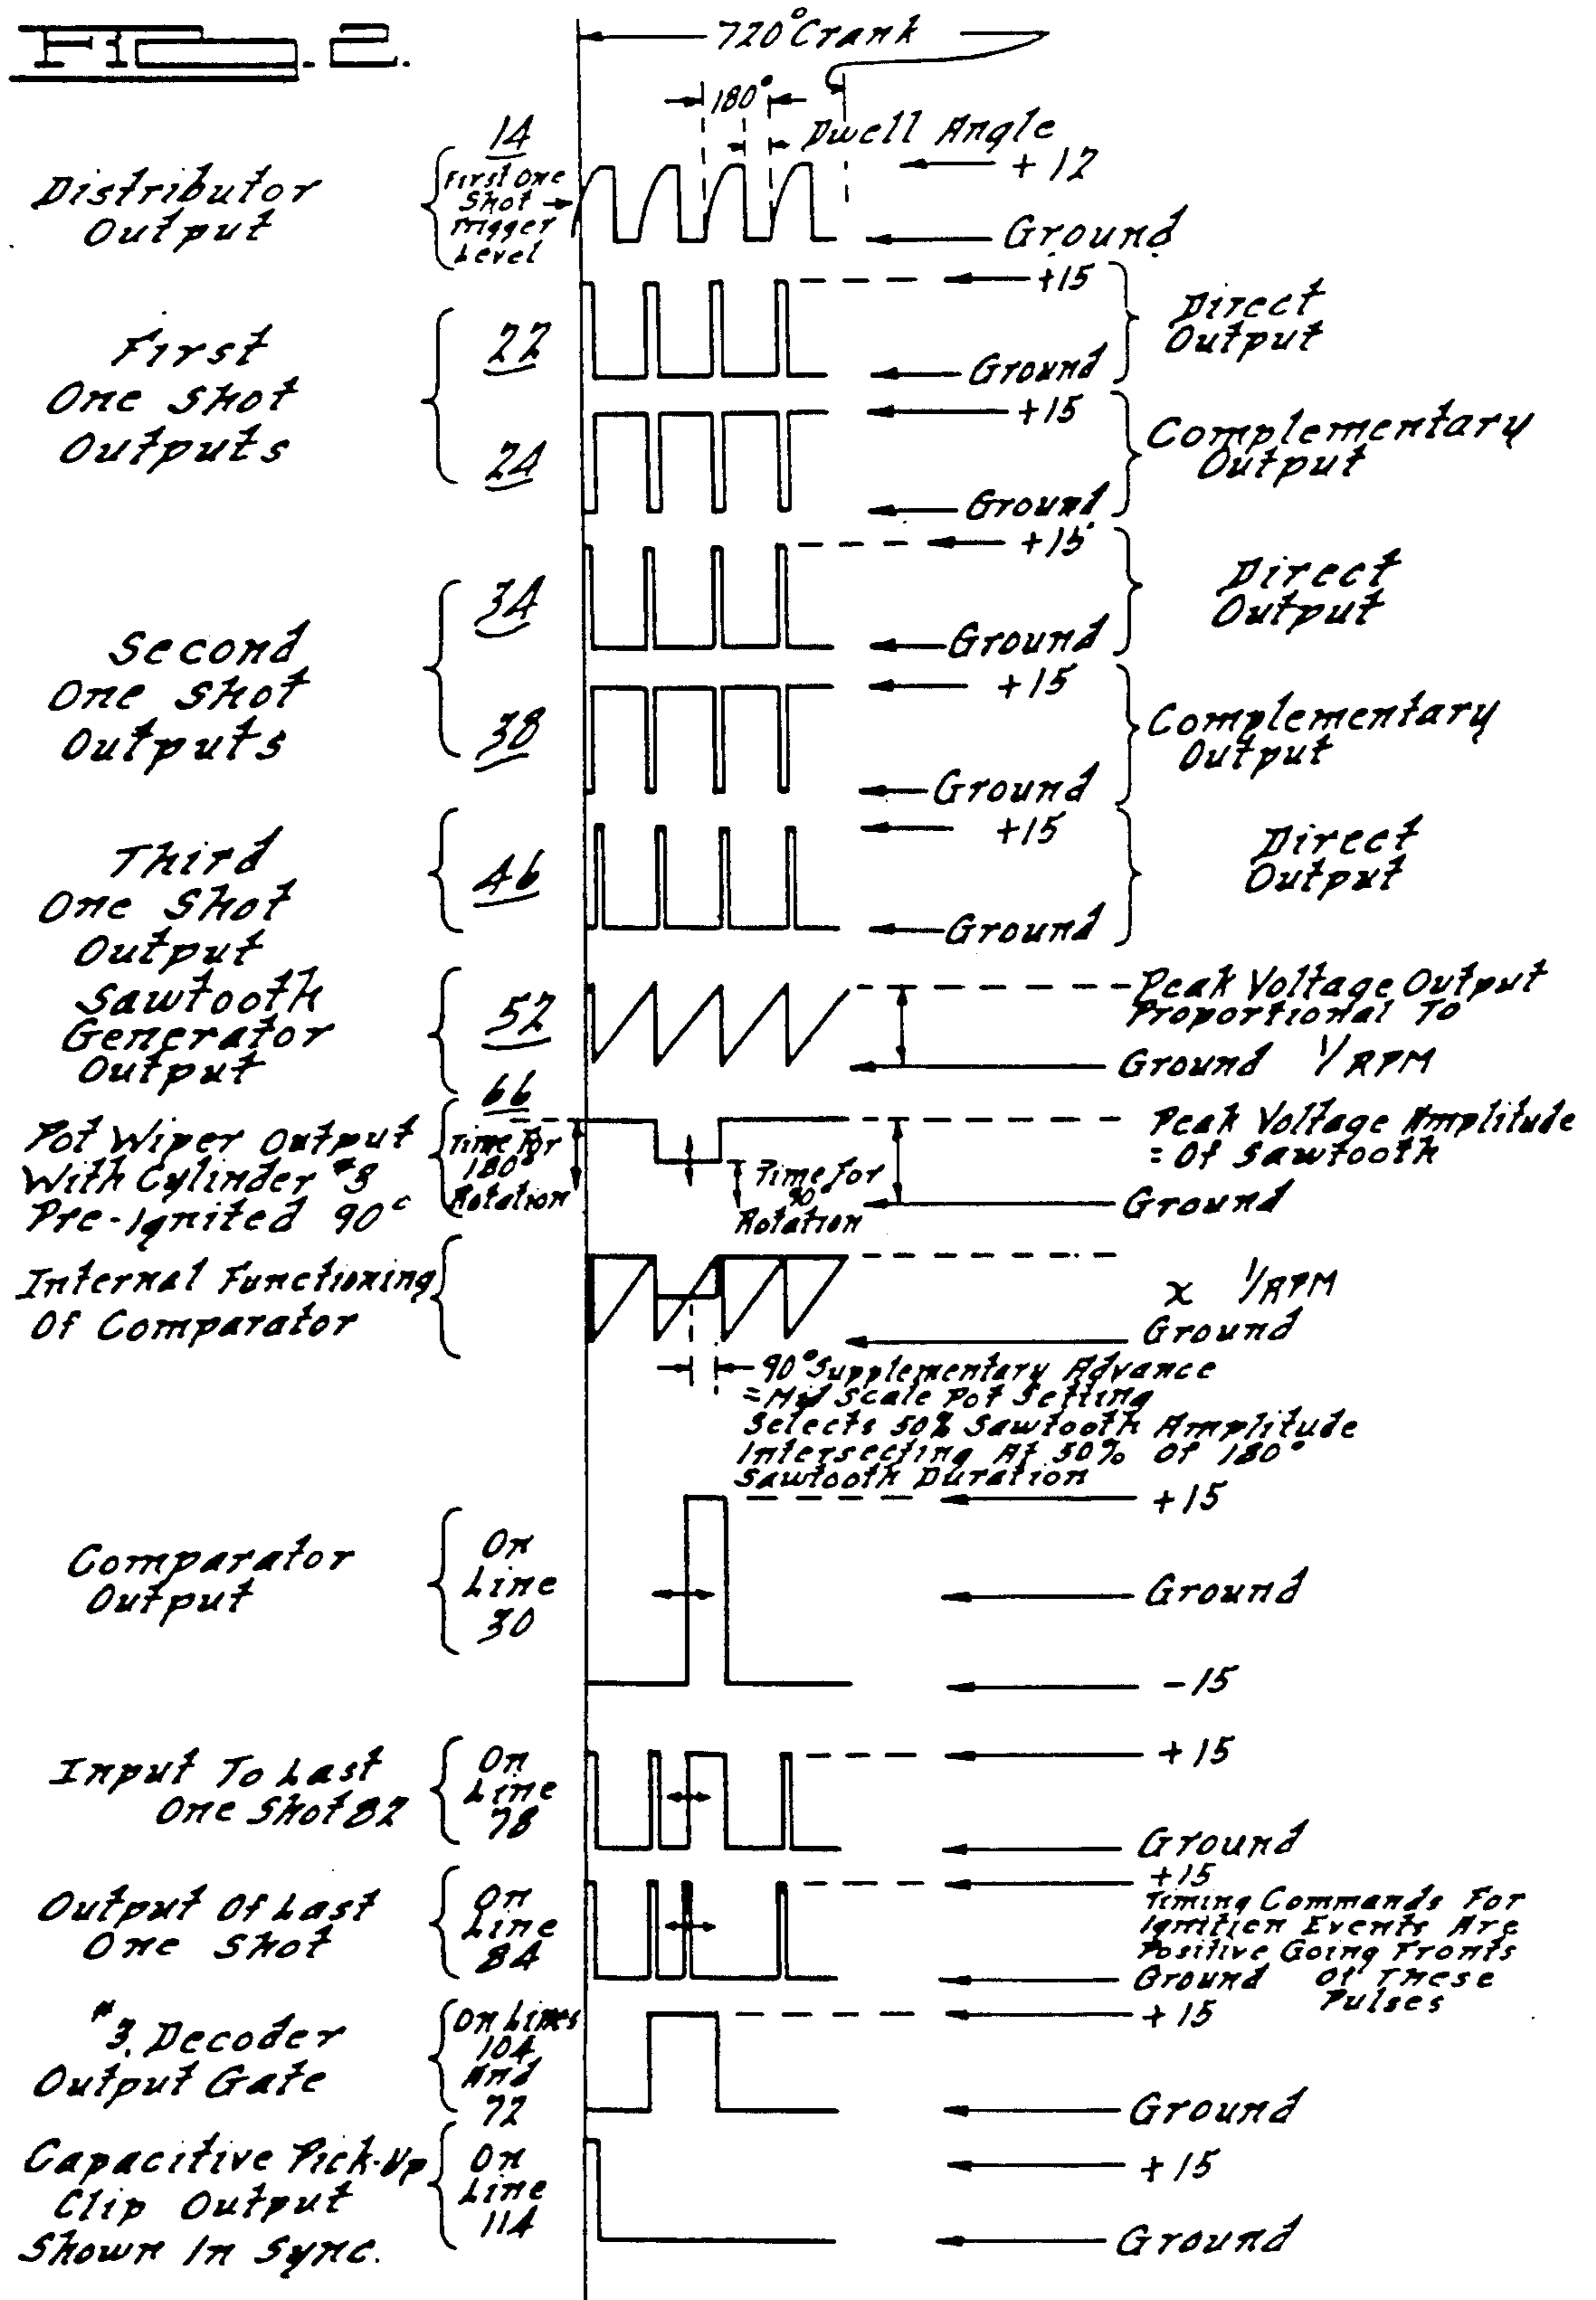 FIG. 2.
720° Crank
180°
Dwell Angle
Distributor
Output
14
First One
Shot
Trigger
Level
+12
Ground
First
One Shot
Outputs
22
+15
Ground
Direct
Output
24
+15
Ground
Complementary
Output
Second
One Shot
Outputs
34
+15
Ground
Direct
Output
38
+15
Ground
Complementary
Output
Third
One Shot
Output
46
+15
Ground
Direct
Output
Sawtooth
Generator
Output
52
Peak Voltage Output
Proportional To
Ground 1/RPM
Pot Wiper Output
With Cylinder #3
Pre-Ignited 90°
66
Time For
180°
Rotation
Time For
90°
Rotation
Peak Voltage Amplitude
= Of Sawtooth
Ground
Internal Functioning
Of Comparator
1/RPM
Ground
90° Supplementary Advance
= Mid Scale Pot Setting
Selects 50% Sawtooth Amplitude
Intersecting At 50% Of 180°
Sawtooth Duration
Comparator
Output
On
Line
30
+15
Ground
-15
Input To Last
One Shot 82
On
Line
78
+15
Ground
Output Of Last
One Shot
On
Line
84
+15
Timing Commands For
Ignition Events Are
Positive Going Fronts
Ground Of These
Pulses
#3. Decoder
Output Gate
On Lines
104
And
72
+15
Ground
Capacitive Pick-Up
Clip Output
Shown In Sync.
On
Line
114
+15
Ground